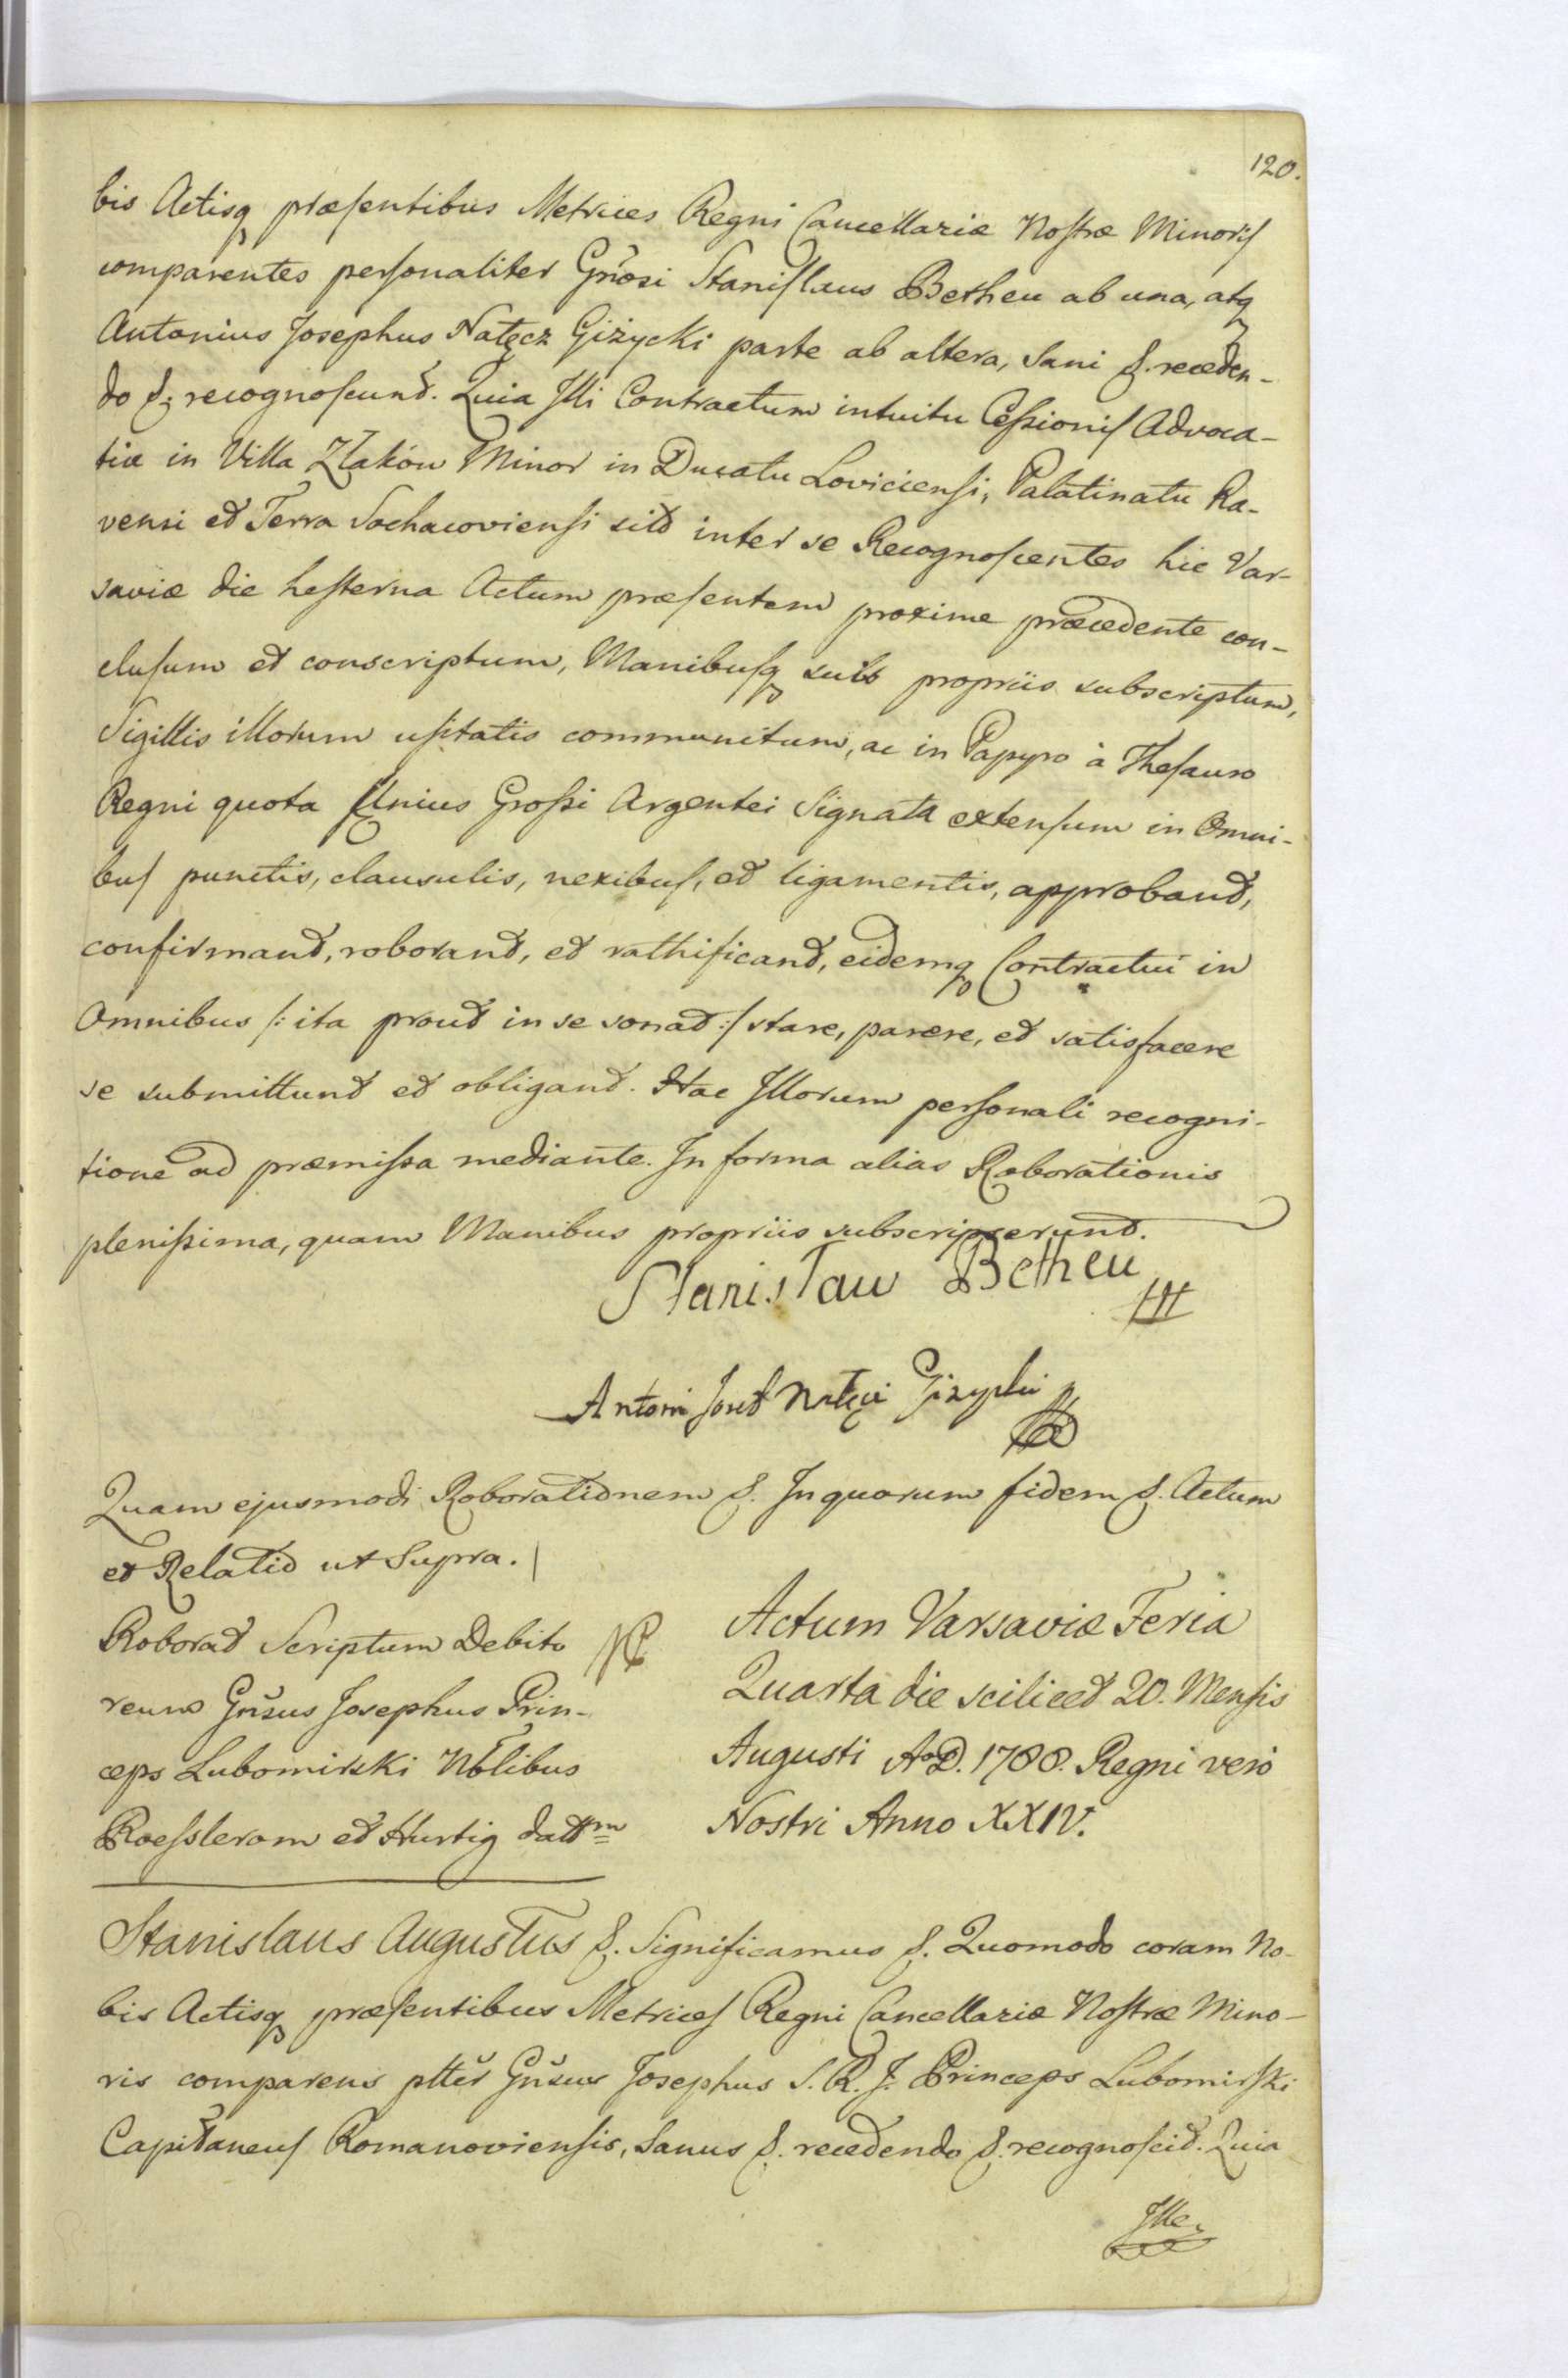 120.
bis Actisq́ præsentibus Metrices Regni Cancellariæ Nostræ Minoris
comparentes personaliter Gn̄osi Stanislaus Betheu ab una, atq́
Antonius Josephus Nałęcz Giżycki parte ab altera, Sani &. receden-
do &. recognoscunt. Quia Illi Contractum intuitu Cessionis Advoca-
tiæ in Villa Złaków Minor in Ducatu Loviciensi, Palatinatu Ra-
vensi et Terra Sochacoviensi sit inter se Recognoscentes hic Var-
saviæ die hesterna Actum præsentem proxime præcedente con-
clusum et conscriptum, Manibusq́ suis propriis subscriptum,
Sigillis illorum usitatis communitum, ac in Papyro à Thesauro
Regni quota Unius Grossi Argentei Signata extensum in Omni-
bus punctis, clausulis, nexibus, et ligamentis, approbant,
confirmant, roborant, et rathificant, eidemq́ Contractui in
Omnibus /: ita prout in se sonat :/ stare, parere, et satisfacere
se submittunt et obligant. Hac Illorum personali recogni-
tione ad præmissa mediante. In forma alias Roborationis
plenissima, quam Manibus propriis subscripserunt.
Stanisław Betheu
Antoni Nałęcz Giżycki
Quam ejusmodi Roborationem &. In quorum fidem &. Actum
et Relatio ut Supra.
Roborat Scriptum Debito
reum Gn̄sus Josephus Prin-
ceps Lubomirski Noblibus
Roesslerom et Hurtig datt͞m
Actum Varsaviæ Feria
Quarta die scilicet 20. Mensis
Augusti A.D. 1788. Regni vero
Nostri Anno XXIV.
Stanislaus Augustus &. Significamus &. Quomodo coram No-
bis Actisq́ præsentibus Metrices Regni Cancellariæ Nostræ Mino-
ris comparens plter Gn̄sus Josephus S. R. J. Princeps Lubomirski
Capitaneus Romanoviensis, Sanus &. recedendo &. recognoscit. Quia
Ille